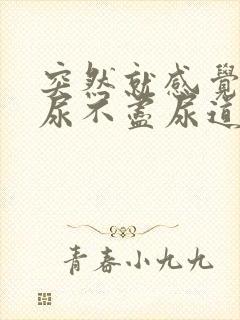 突然就感覺
尿不盡尿道
青春小九九